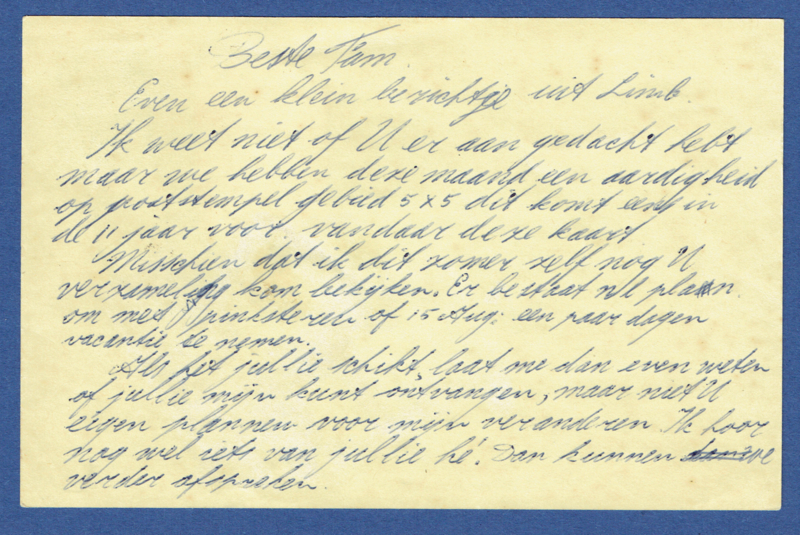 Beste Fam.
Even een klein berichtje uit Limb.
Ik weet niet of U er aan gedacht hebt
maar we hebben deze maand een aardigheid
op poststempel gebied 5 x 5 dit komt eens in
de 11 jaar voor, vandaar deze kaart
Misschien dat ik dit zomer zelf nog U
verzameling kom bekijken. Er bestaat nl plan
om met pinksteren of 15 Aug: een paar dagen
vacantie te nemen.
Als het jullie schikt laat me dan even weten
of jullie mijn kunt ontvangen, maar niet U
eigen plannen voor mijn veranderen. Ik hoor
nog wel iets van jullie hé! Dan kunnen we
verder afspreken.